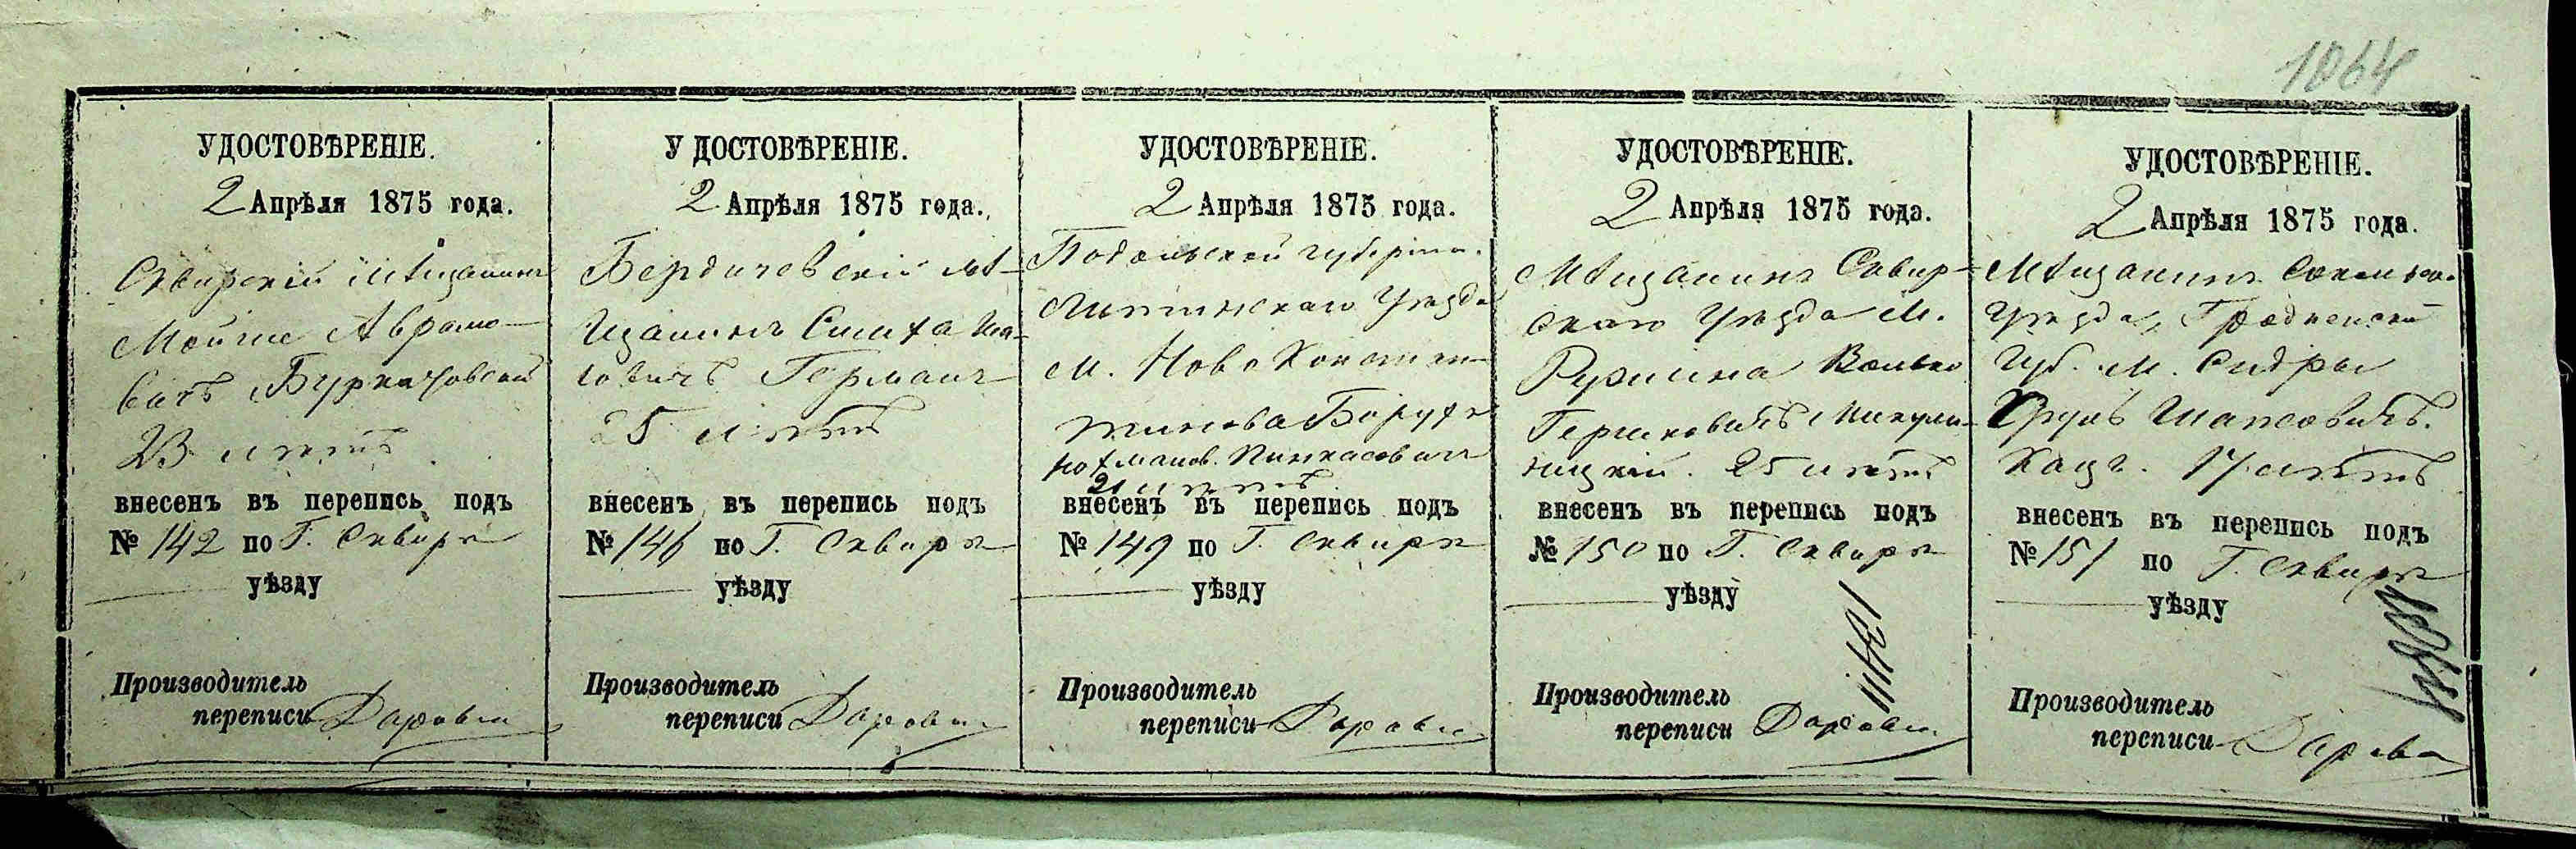 1064
УДОСТОВѢРЕНІЕ.
2 Апрѣля 1875 года.
Сквирскій Мѣщанинъ
Мойше Аврамо-
вичъ
23 лѣтъ
внесенъ въ перепись подъ
№ 142 по Г. Сквирѣ
уѣзду
Производитель
переписи
УДОСТОВѢРЕНІЕ.
2 Апрѣля 1875 года.
Бердичевскій мѣ-
щанинъ Симха
Германъ
25 лѣтъ
внесенъ въ перепись подъ
№ 146 по Г. Сквирѣ
уѣзду
Производитель
переписи
УДОСТОВѢРЕНІЕ.
2 Апрѣля 1875 года.
Подольской губерніи.
Литинскаго Уѣзда
м. Ново Констан-
тинова Борухъ
Нахманов. Пинкасовичъ
21 лѣтъ
внесенъ въ перепись подъ
№ 149 по Г. Сквирѣ
уѣзду
Производитель
переписи
УДОСТОВѢРЕНІЕ.
2 Апрѣля 1875 года.
Мѣщанинъ Сквир-
скаго Уѣзда М.
Ружина Волько
Гершковичъ Микули-
ницкій. 25 лѣтъ
внесенъ въ перепись подъ
№ 150 по Г. Сквирѣ
уѣзду
Производитель
переписи
УДОСТОВѢРЕНІЕ.
2 Апрѣля 1875 года.
Мѣщанинъ Соколь.
Уѣзда, Гродненской
Губ. М. Сидры
Шапсовичъ.
Кацъ. 17 лѣтъ
внесенъ въ перепись подъ
№ 151 по Г. Сквирѣ
уѣзду
Производитель
переписи